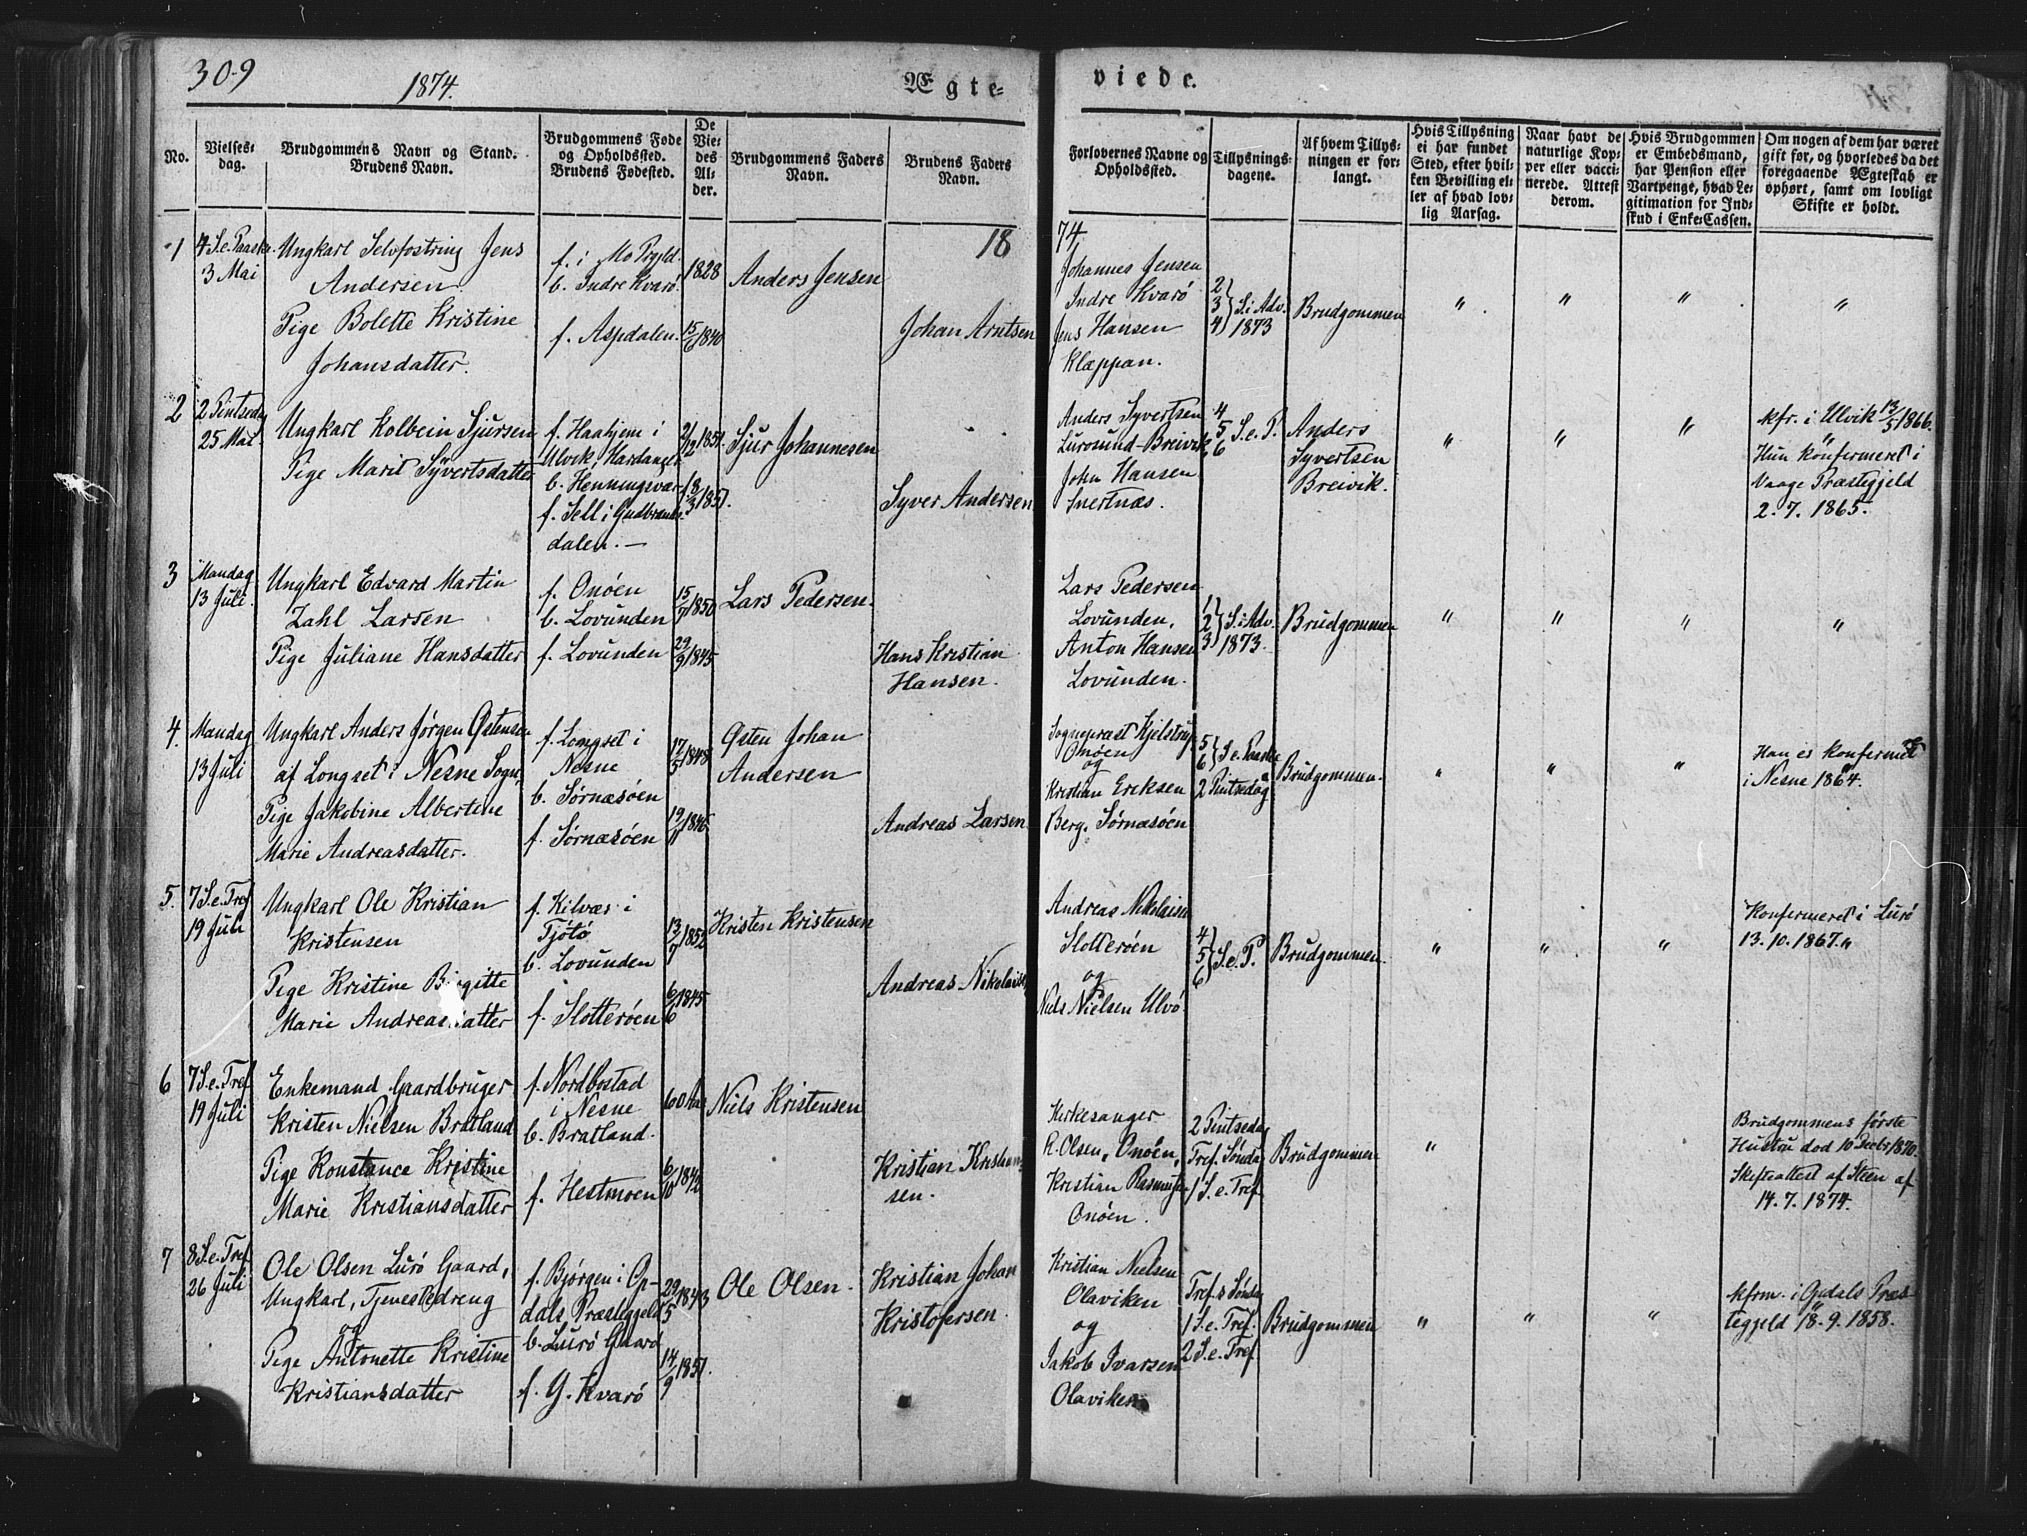 309
1874.
Ægte=
viede.
No.
Vielses=
dag.
Brudgommens Navn og Stand.
Brudens Navn.
Brudgommens Føde
og Opholdssted.
Brudens Fødested.
De
Vie=
des
Al=
der.
Brudgommens Faders
Navn.
Brudens Faders
Navn.
Forlovernes Navne og
Opholdssted.
Tillysnings=
dagene.
Af hvem Tillys=
ningen er for=
langt.
Hvis Tillysning
ei har fundet
Sted, efter hvil=
ken Bevilling el=
ler af hvad lov=
lig Aarsag.
Naar havt de
naturlige Kop=
per eller vacci=
nerede. Attest
derom.
Hvis Brudgommen
er Embedsmand,
har Pension eller
Vartpenge, hvad Le=
gitimation for Ind=
skud i Enke=Cassen.
Om nogen af dem har været
gift før, og hvorledes da det
foregaaende Ægteskab er
ophørt, samt om lovligt
Skifte er holdt.
18
74
1
4 S. e. Paaske
3 Mai
Ungkarl Selvfostring Jens
Andersen
Pige Bolette Kristine
Johansdatter.
f. i Mo Prgld.
b. Indre Kvarö
f. Aspdalen.
1828
15/6 1840
Anders Jensen
Johan Arntsen
Johannes Jensen
Indre Kvarö
Jens Hansen
Klæppan.
2
3
4 } S. i Adv.
1873
Brudgommen
" " " "
2
2 Pintsedag
25 Mai
Ungkarl Kolbein Sjursen
Pige Marit Syvertsdatter
f. Haahjem i
Ulvik Hardanger
b. Henningsvær
f. Sell i Gudbrands-
dalen. —
2/12 1851.
18/3 1851.
Sjur Johannesen
Syver Andersen
Anders Syvertsen
Lurosund-Breivik
John Hansen
Snertnæs.
4
5
6 } S. e. P.
Anders
Syvertsen
Breivik.
" " "
kfr. i Ulvik 13/5 1866.
Hun konfermeret i
Vaage Præstegjeld
2. 7. 1865.
3
Mandag
13 Juli.
Ungkarl Edvard Martin
Zahl Larsen
Pige Juliane Hansdatter
f. Onöen
b. Lovunden
f. Lovunden
15/7 1850
29/9 1845
Lars Pedersen.
Hans Kristian
Hansen.
Lars Pedersen
Lovunden,
Anton Hansen
Lovunden.
1
2
3 } S. i Adv.
1873.
Brudgommen
" " " "
4.
Mandag
13 Juli
Ungkarl Anders Jørgen Østensen
af Longset i Nesne Sogn,
Pige Jakobine Albertine
Marie Andreasdatter.
f. Longset i
Nesne
b. Sörnæsöen
f. Sörnæsöen
17/5 1848
19/11 1846
Østen Johan
Andersen
Andreas Larsen.
Sognepræst Kjelstrup
Onöen
og
Kristian Eriksen
Berg. Sörnæsöen
5
6 } S. e. Paaske
2 Pintsedag
Brudgommen.
" " "
Han er konfermeret
i Nesne 1864.
5.
7 S. e. Tref.
19 Juli
Ungkarl Ole Kristian
Kristensen
Pige Kristine Birgitte
Marie Andreasdatter
f. Kilvær i
Tjötö
b. Lovunden
f. Slotteröen
13/7 1852
6/6 1845
Kristen Kristensen
Andreas Nikolaisen
Andreas Nikolaisen
Slotteröen
og
Niels Nielsen Ulvö
4
5
6 } S. e. P.
Brudgommen.
" " "
Konfermeret i Lurö
13. 10. 1867.
6
7 S. e. Tref.
19 Juli
Enkemand Gaardbruger
Kristen Nielsen Bratland
Pige Konstance Kristine
Marie Kristiansdatter
f. Nordbostad
i Nesne
b. Bratland.
f. Hestmoen
60 Aar
6/10 1842
Niels Kristensen
Kristian Kristian-
sen.
Kirkesanger
R. Olsen, Onöen,
Kristian Rasmusen
Onöen.
2 Pintsedag
Tref. Söndag
1 S. e. Tref.
Brudgommen
"
Brudgommens første
Hustru död 10 Decbr 1870.
Skifteattest af Steen af
14. 7. 1874.
7
8 S. e. Tref.
26 Juli
Ole Olsen Lurö Gaard,
Ungkarl, Tjenestedreng
og
Pige Antonette Kristine
Kristiansdatter
f. Björgen i Op-
dals Præstegjeld
b. Lurö Gaard
f. Y. Kvarö
29/5 1843
14/9 1851.
Ole Olsen.
Kristian Johan
Kristofersen.
Kristian Nielsen
Olaviken
og
Jakob Ivarsen
Olaviken
Tref.s Söndag
1 S. e. Tref.
2 S. e. Tref.
Brudgommen
" " "
kfrm. i Opdals Præs
tegjeld 18. 9. 1858.